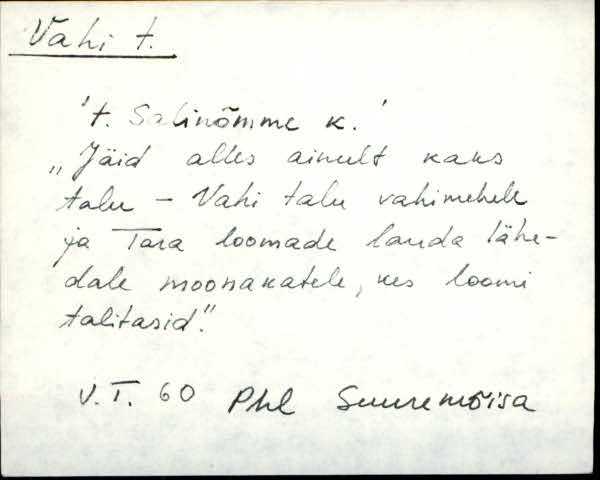 Vahi t.
't. Salinõmme k.'
„Jäid alles ainult kaks
talu – Vahi talu vahimehele
ja Tara loomade lauda lähe-
dale moonakatele, kes loomi
talitasid".
V.T. 60 Phl Suuremõisa